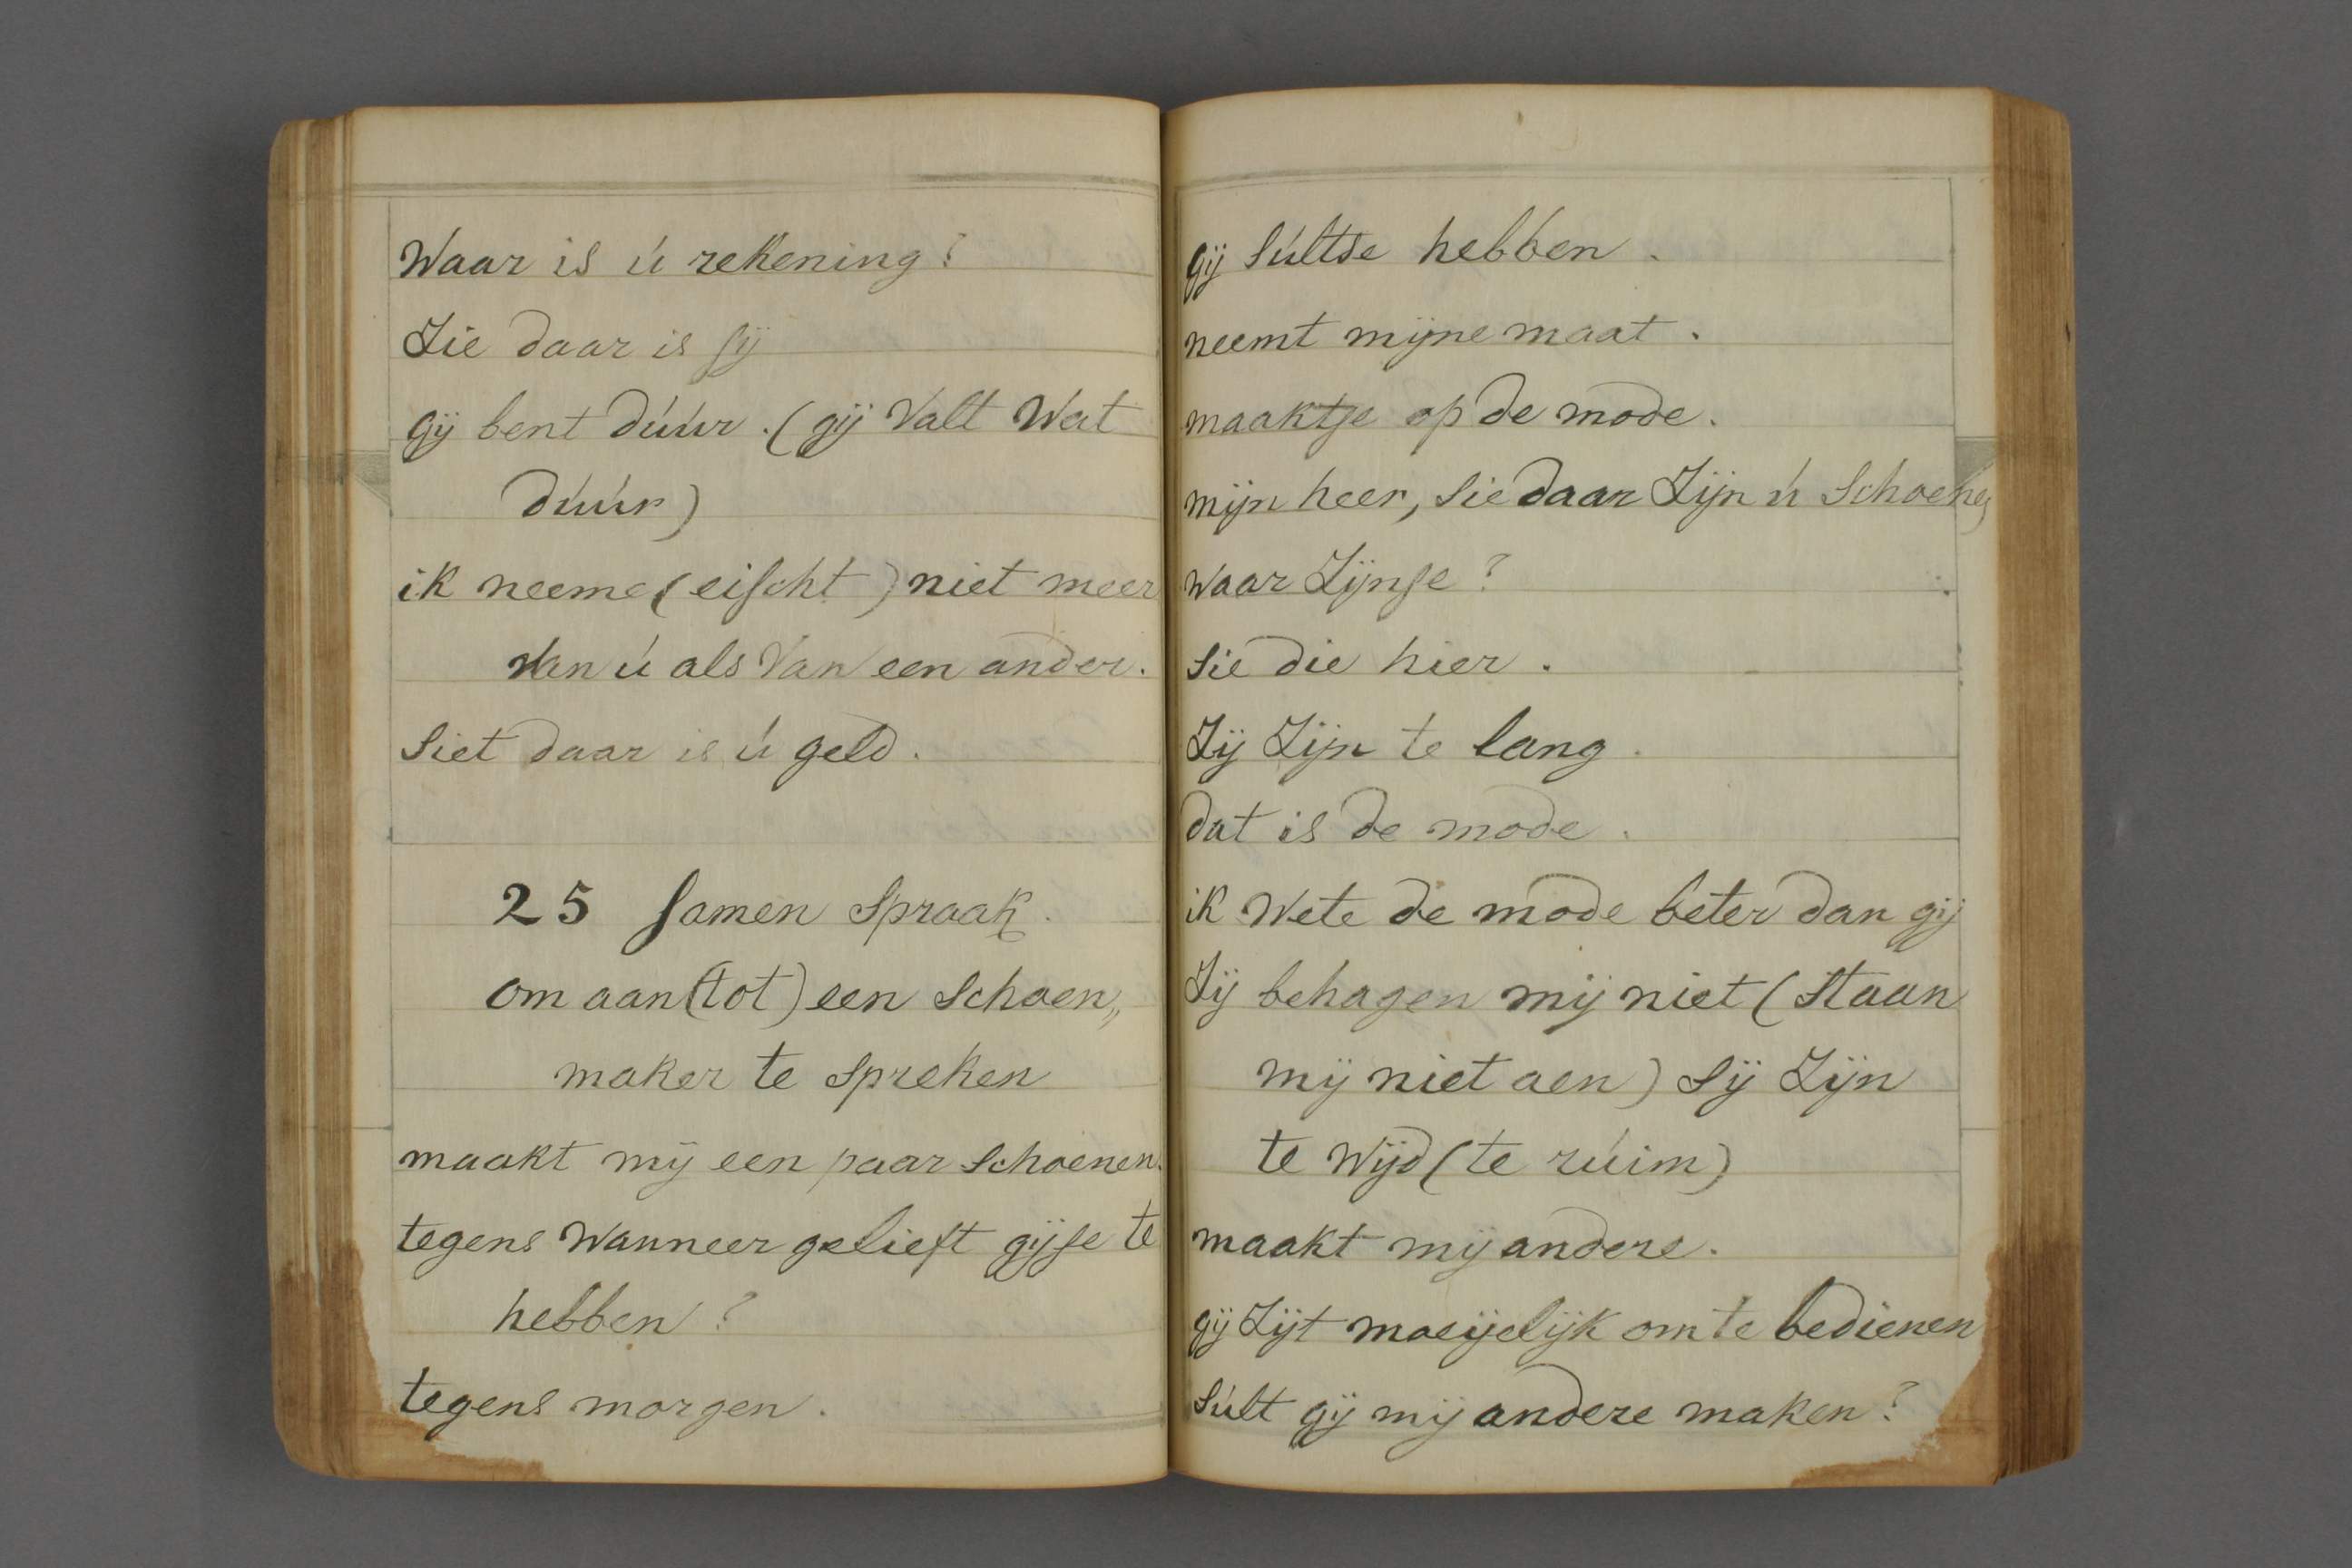 Waar is ú rekening?
Zie daar is sij
gij bent dúúr. (gij Valt Wat
dúúr)
ik neeme (eischt) niet meer
Van ú als Van een ander.
Siet daar is ú geld.
25 Samen Spraak.
om aan (tot) een Schoen„
maker te Spreken
maakt mij een paar Schoenen.
tegens Wanneer gelieft gijse te
hebben?
tegens morgen.
gij Súltse hebben.
neemt mijne maat.
maaktse op de mode.
mijn heer, Sie daar Zijn ú Schoenen
Waar Zijnse?
Sie die hier.
Zij Zijn te lang.
dat is de mode.
ik Wete de mode beter dan gij
Zij behagen mij niet (Staan
mij niet aen) Sij Zijn
te Wijd (te rúim)
maakt mij andere.
gij Zijt moeijelijk om te bedienen
Súlt gij mij andere maken?